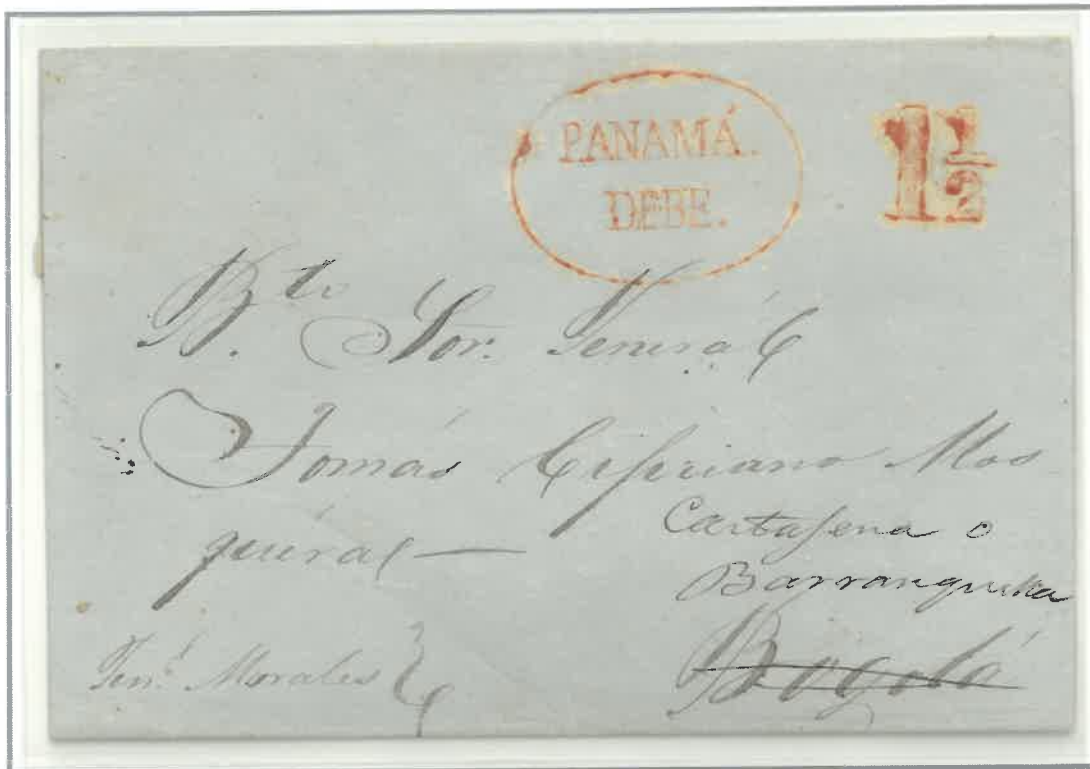 PANAMÁ.
DEBE.
1½
B.to Sor. Jenerál
Tomás Cipriano Mos
queira
Cartajena o
Barranquilla
Bogotá
Jen.l Morales